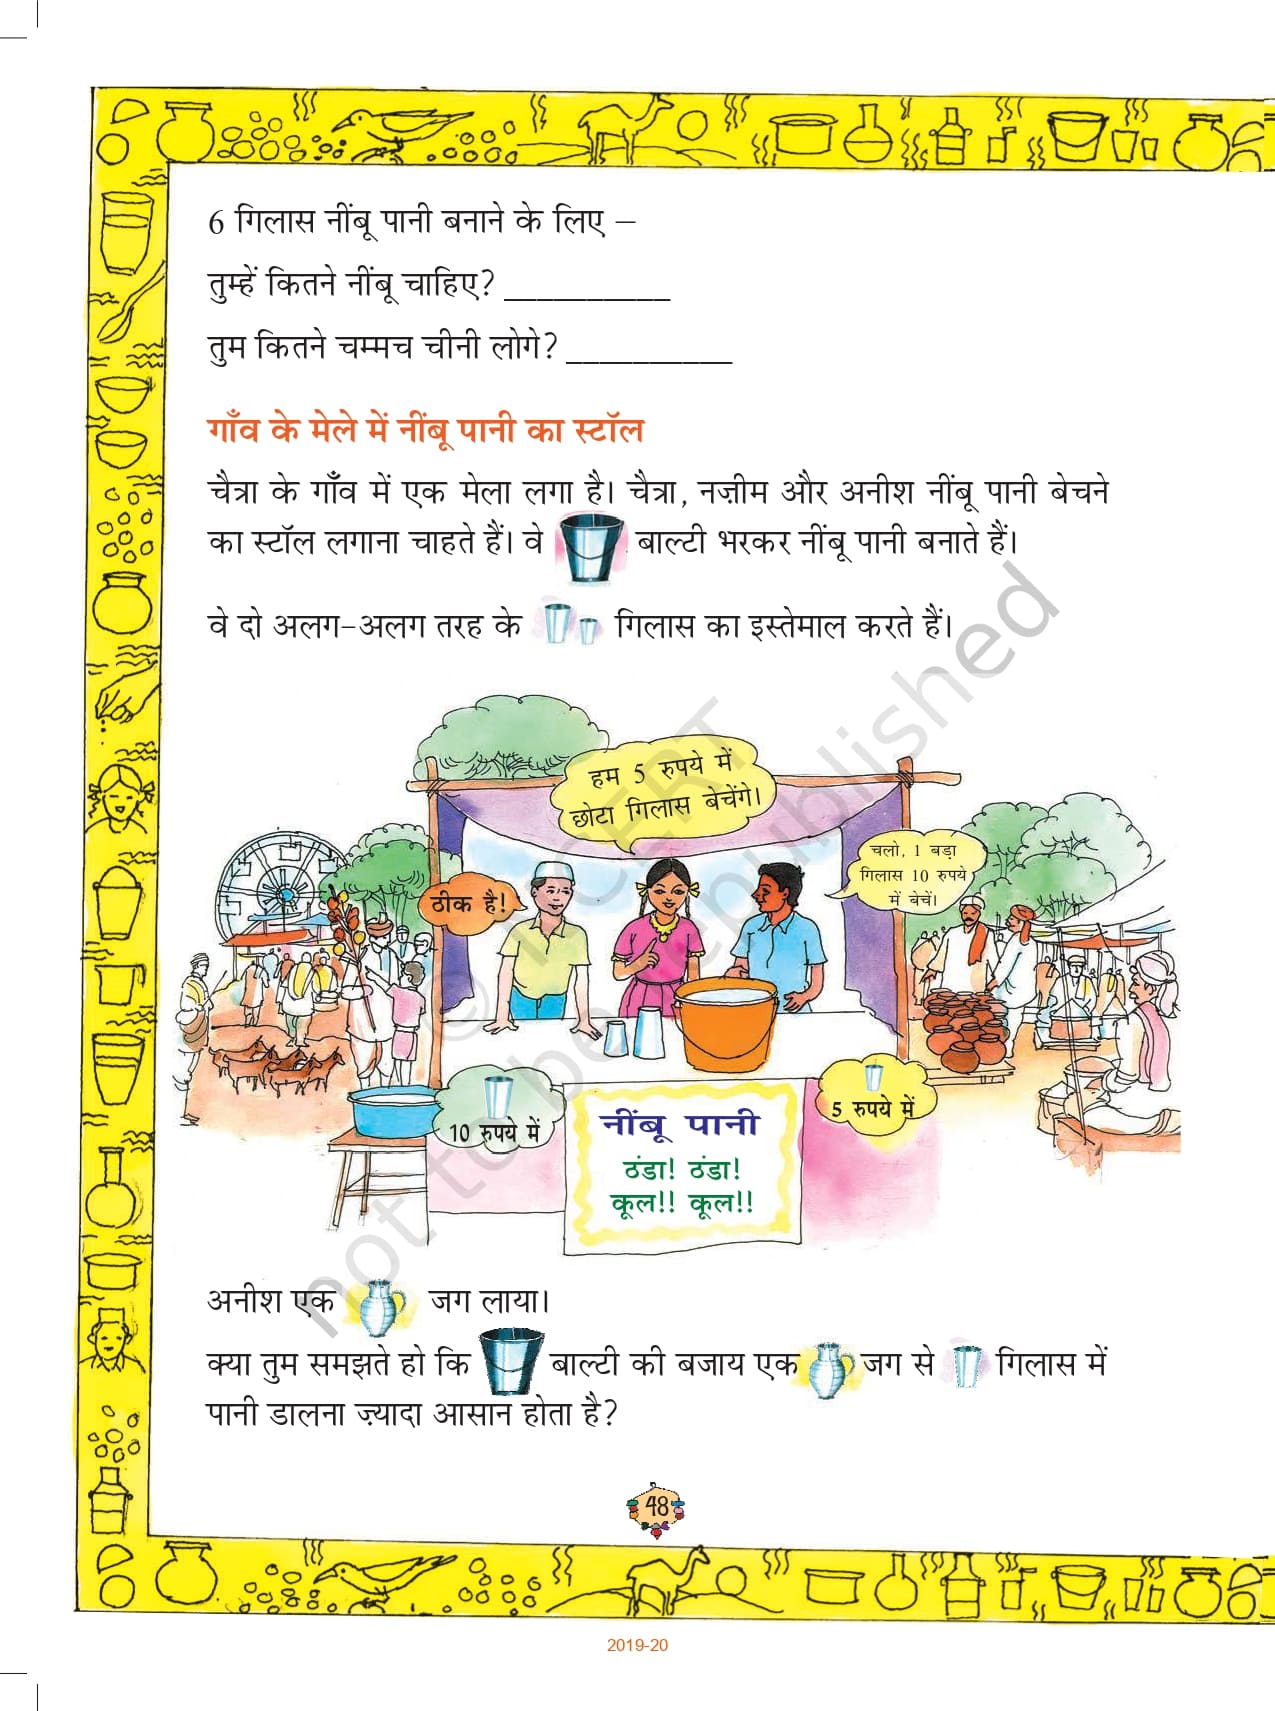 6 गिलास नींबू पानी बनाने के लिए –
तुम्हें कितने नींबू चाहिए? __________
तुम कितने चम्मच चीनी लोगे? __________
गाँव के मेले में नींबू पानी का स्टॉल
चैत्रा के गाँव में एक मेला लगा है। चैत्रा, नज़ीम और अनीश नींबू पानी बेचने
का स्टॉल लगाना चाहते हैं। वे बाल्टी भरकर नींबू पानी बनाते हैं।
वे दो अलग-अलग तरह के गिलास का इस्तेमाल करते हैं।
हम 5 रुपये में
छोटा गिलास बेचेंगे।
चलो, 1 बड़ा
गिलास 10 रुपये
में बेचें।
ठीक है!
10 रुपये में
5 रुपये में
नींबू पानी
ठंडा! ठंडा!
कूल!! कूल!!
अनीश एक जग लाया।
क्या तुम समझते हो कि बाल्टी की बजाय एक जग से गिलास में
पानी डालना ज़्यादा आसान होता है?
48
2019-20
© NCERT
not to be republished